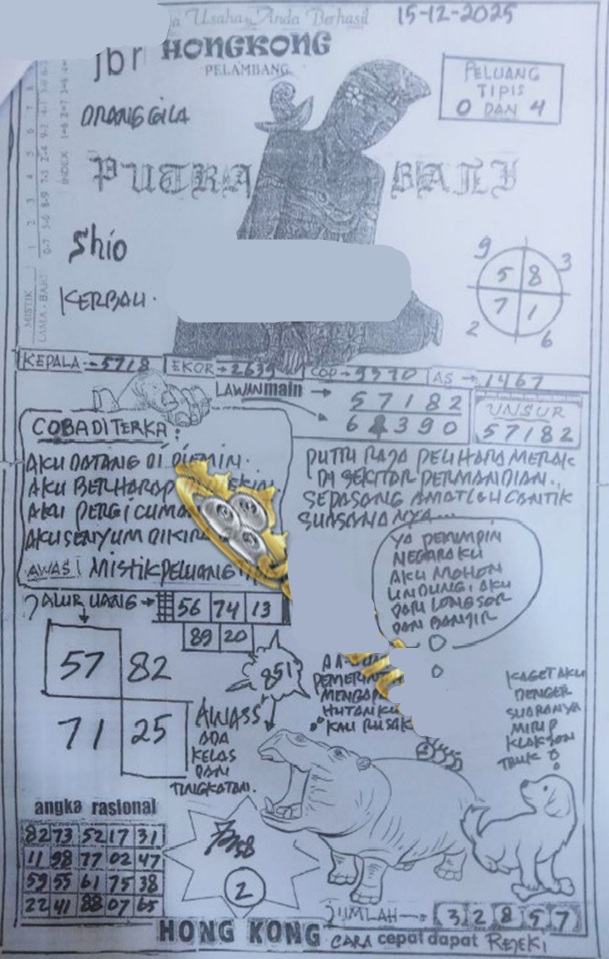 Usaha Anda Berhasil
15-12-2025
jbr HONGKONG
PELAMBANG
PELUANG
TIPIS
0 DAN 4
ORANG GILA
PUTRA BALI
Shio
KERBAU.
9 3
5 8
7 1
2 6
MISTIK
LAMA - BARU
INDEX
KEPALA → 5718 EKOR → 2639 COP → 9370 AS → 1467
LAWAN main →
5 7 1 8 2
6 4 3 9 0
UNSUR
57182
COBA DITERKA:
AKU DATANG DI
AKU BERHARAP
AKU PERGI CUMA
AKU SENYUM DIKIRA
AWAS! MISTIK PELUANG
PUTRI RAJA PELIHARA MERAK
DI SEKITOR PERMANDIAN.
SEPASANG AMATLAH CANTIK
SUASANANYA...
YA PEMIMPIN
NEGARAKU
AKU MOHON
LINDUNGI AKU
DARI LONGSOR
DAN BANJIR
JALUR UANG → 56 74 13
89 20
57 82
71 25
851
AWASS
ADA
KELAS
DAN
TINGKATAN.
HUTANKU
KAU RUSAK
KAGET AKU
DENGER
SUARANYA
MIRIP
KLAKSON
TRUK
angka rasional
82 73 52 17 31
11 98 77 02 47
59 55 61 75 38
22 41 88 07 65
2
JUMLAH → 3 2 8 5 7
HONG KONG CARA cepat dapat REJEKI